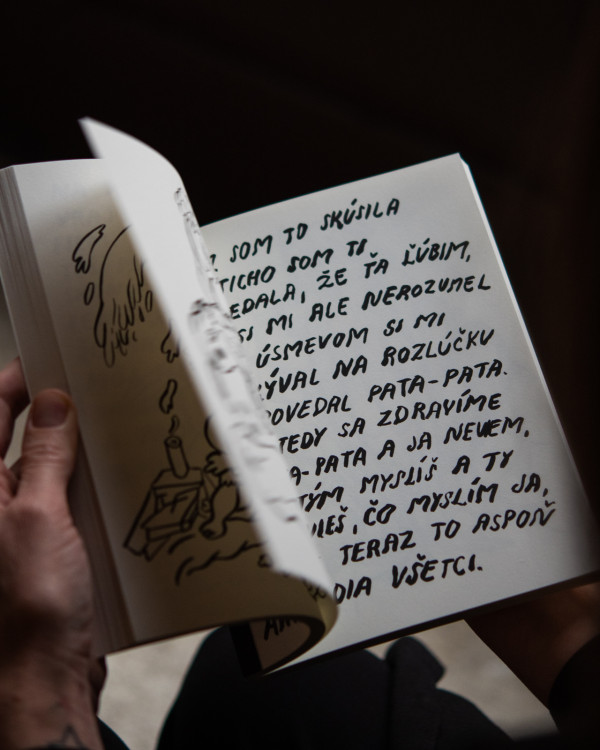 SOM TO SKÚSILA
TICHO SOM TI
EDALA, ŽE ŤA ĽÚBIM,
SI MI ALE NEROZUMEL
ÚSMEVOM SI MI
ÝVAL NA ROZLÚČKU
POVEDAL PATA-PATA.
TEDY SA ZDRAVÍME
A-PATA A JA NEVIEM,
TÝM MYSLÍŠ A TY
IEŠ, ČO MYSLÍM JA,
TERAZ TO ASPOŇ
DIA VŠETCI.